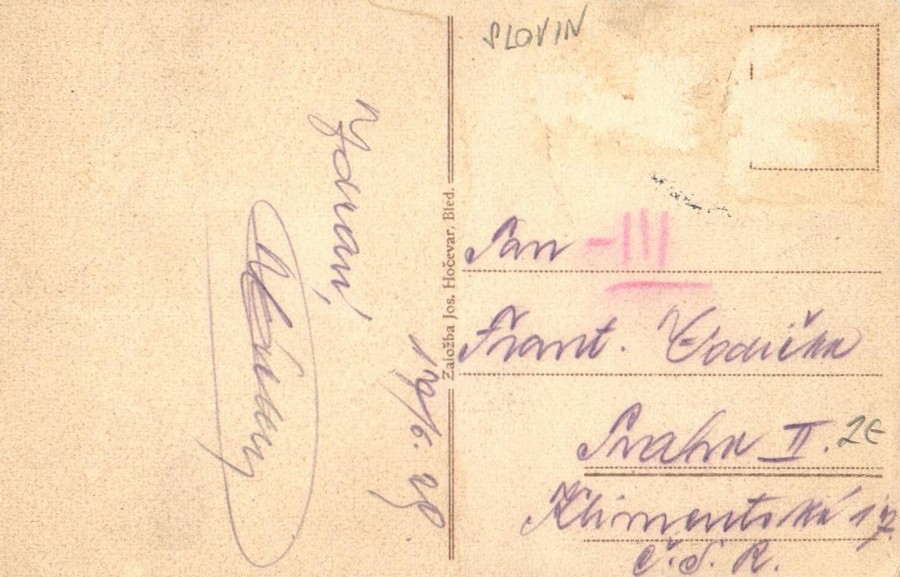 SLOVIN
Založba Jos. Hočevar, Bled.
19/6. 28
Pan -III
Frant. Vodička
Praha II. 2€
Klimentská 17.
Č.S.R.